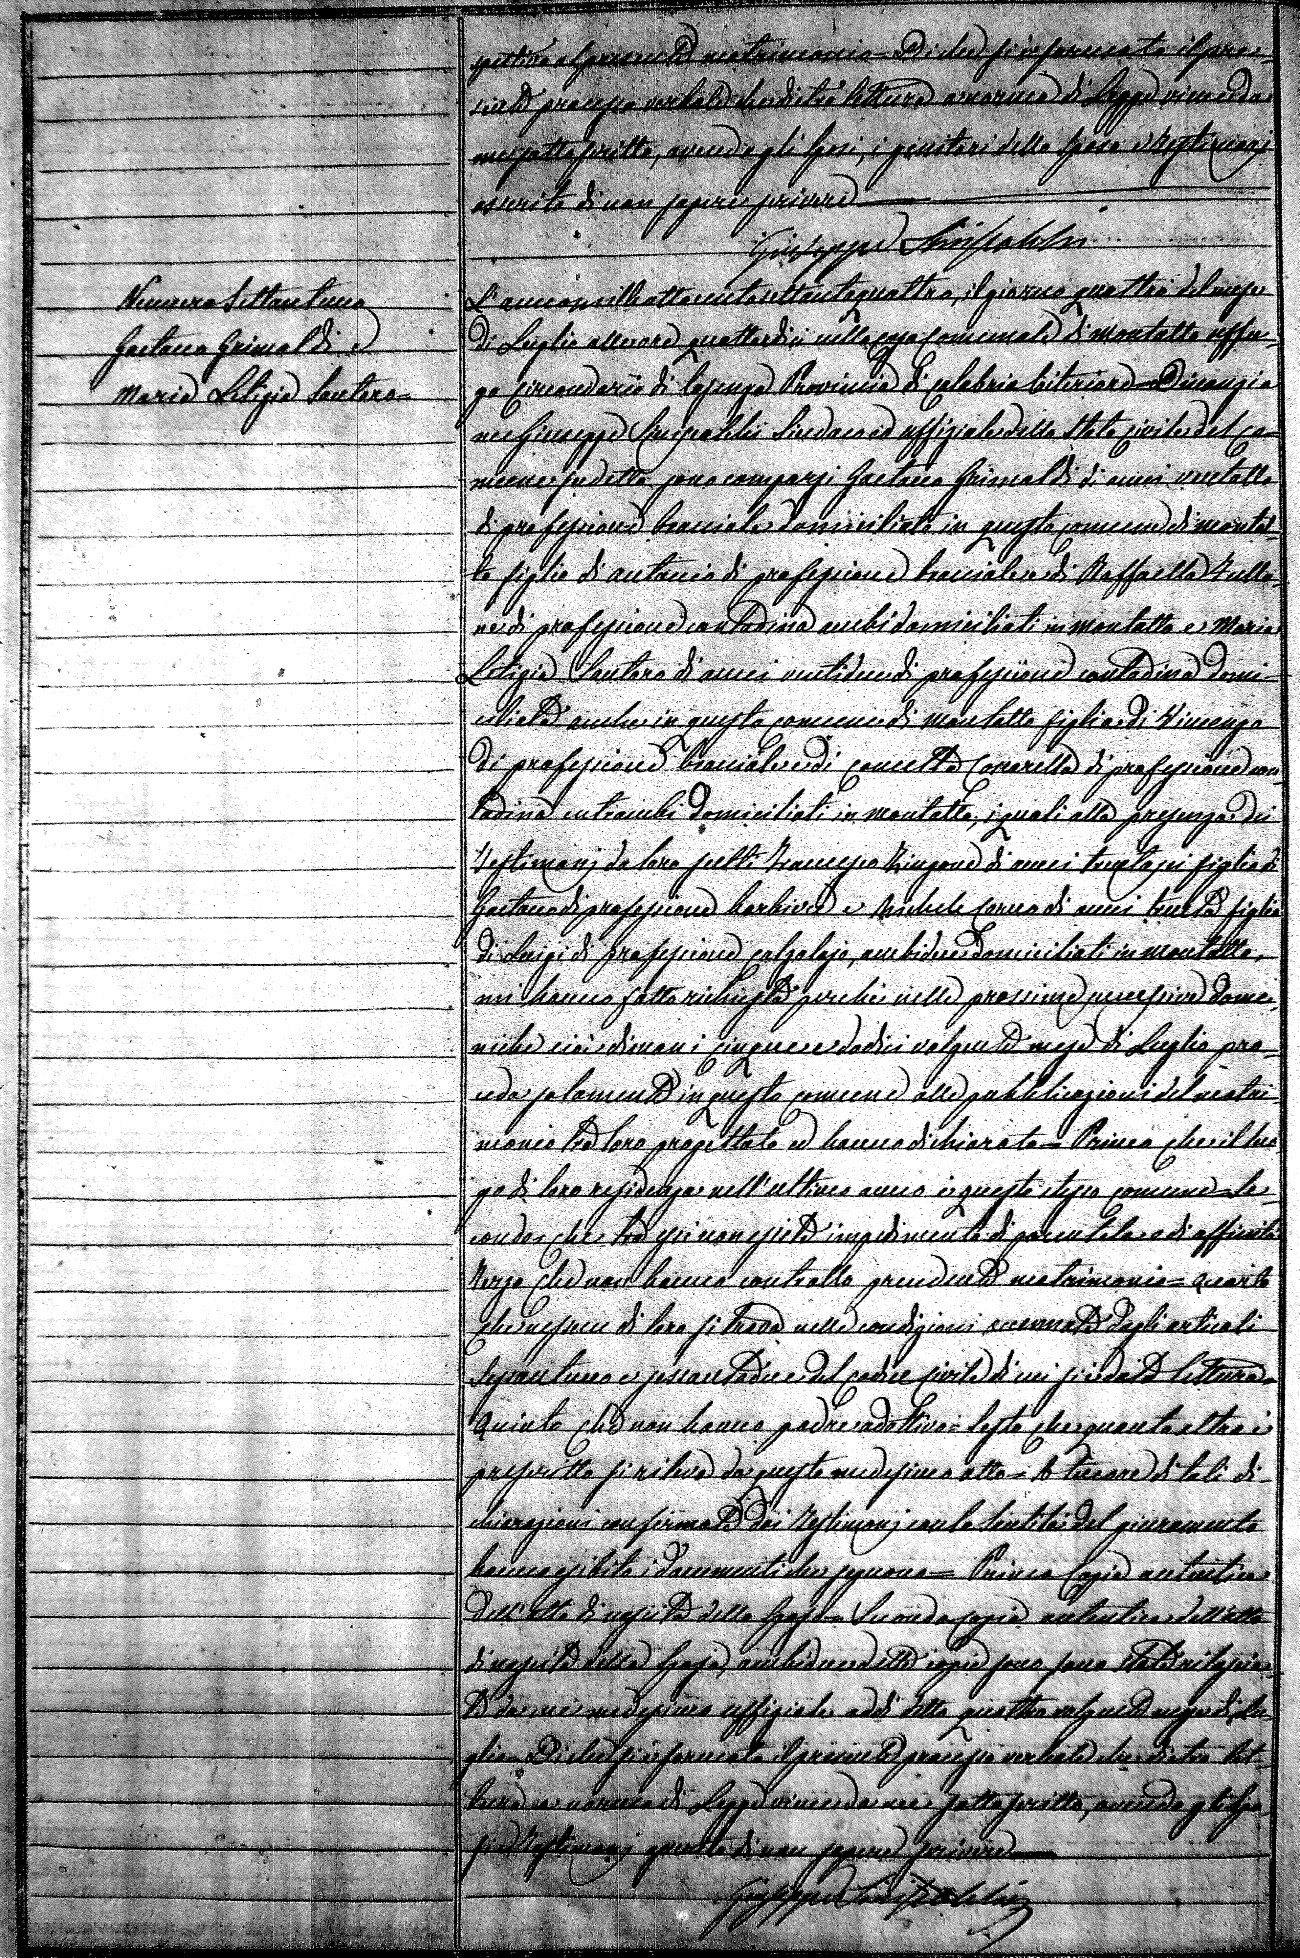 al presente matrimonio = Di che si è formato il pre=
sente processo verbale che dietro lettura a norma di Legge viene da
me sottoscritto, avendo gli sposi, i genitori della sposa e Testimonj
asserito di non sapere scrivere
Giuseppe
Numero settantuno
Gaetano Grimaldi e
Maria Letizia Santoro=
L'anno milleottocentosettantaquattro, il giorno quattro del mese
di Luglio alle ore quattordici nella casa comunale di Montalto Uffu=
go circondario di Cosenza Provincia di Calabria Citeriore= Dinanzi a
me Giuseppe Sindaco ed uffiziale dello Stato civile del co=
mune sudetto sono comparsi Gaetano Grimaldi di anni
di professione bracciale domiciliato in questo comune di Montal=
to figlio di Antonio di professione bracciale e di Raffaella
ne di professione contadina ambi domiciliati in Montalto e Maria
Letizia Santoro di anni ventidue di professione contadina domi=
ciliata anche in questo comune di Montalto figlia di Vincenzo
di professione bracciale e di Concetta di professione con
tadina entrambi domiciliati in Montalto, i quali alla presenza dei
Testimonj da loro scelti Francesco di anni figlio di
Gaetano di professione barbiere e Michele di anni trenta figlio
di Luigi di professione calzolajo, ambidue domiciliati in Montalto,
mi hanno fatto richiesta perchè nelle prossime successive dome=
niche cioè dimani cinque e dodici volgente mese di Luglio pro=
ceda solamente in questo comune alle pubblicazioni del matri
monio tra loro progettato ed hanno dichiarato= Primo che il luo
go di loro residenza nell'ultimo anno è questo stesso comune= Se=
condo che tra essi non esiste impedimento di parentela o di affinità
Terzo che non hanno contratto precedente matrimonio= Quarto
che nessuno di loro si trova nelle condizioni accennate dagli articoli
sessantuno e sessantadue del codice civile di cui si è data lettura=
Quinto che non hanno padre adottivo= Sesto che quanto altro è
prescritto si rileva da questo medesimo atto= A tenore di tali di=
chiarazioni confermate dai Testimonj con la santità del giuramento
hanno esibito i documenti che seguono= Primo Copia autentica
dell'atto di nascita dello sposo= Secondo copia autentica dell'atto
di nascita della sposa, ambidue dette copie sono sono state rilascia=
te da me medesimo uffiziale addì detto quattro volgente mese di Lu=
glio= Di che si è formato il presente processo verbale che dietro let=
tura a norma di Legge viene da me sottoscritto, avendo gli spo
si e Testimonj asserito di non sapere scrivere
Giuseppe